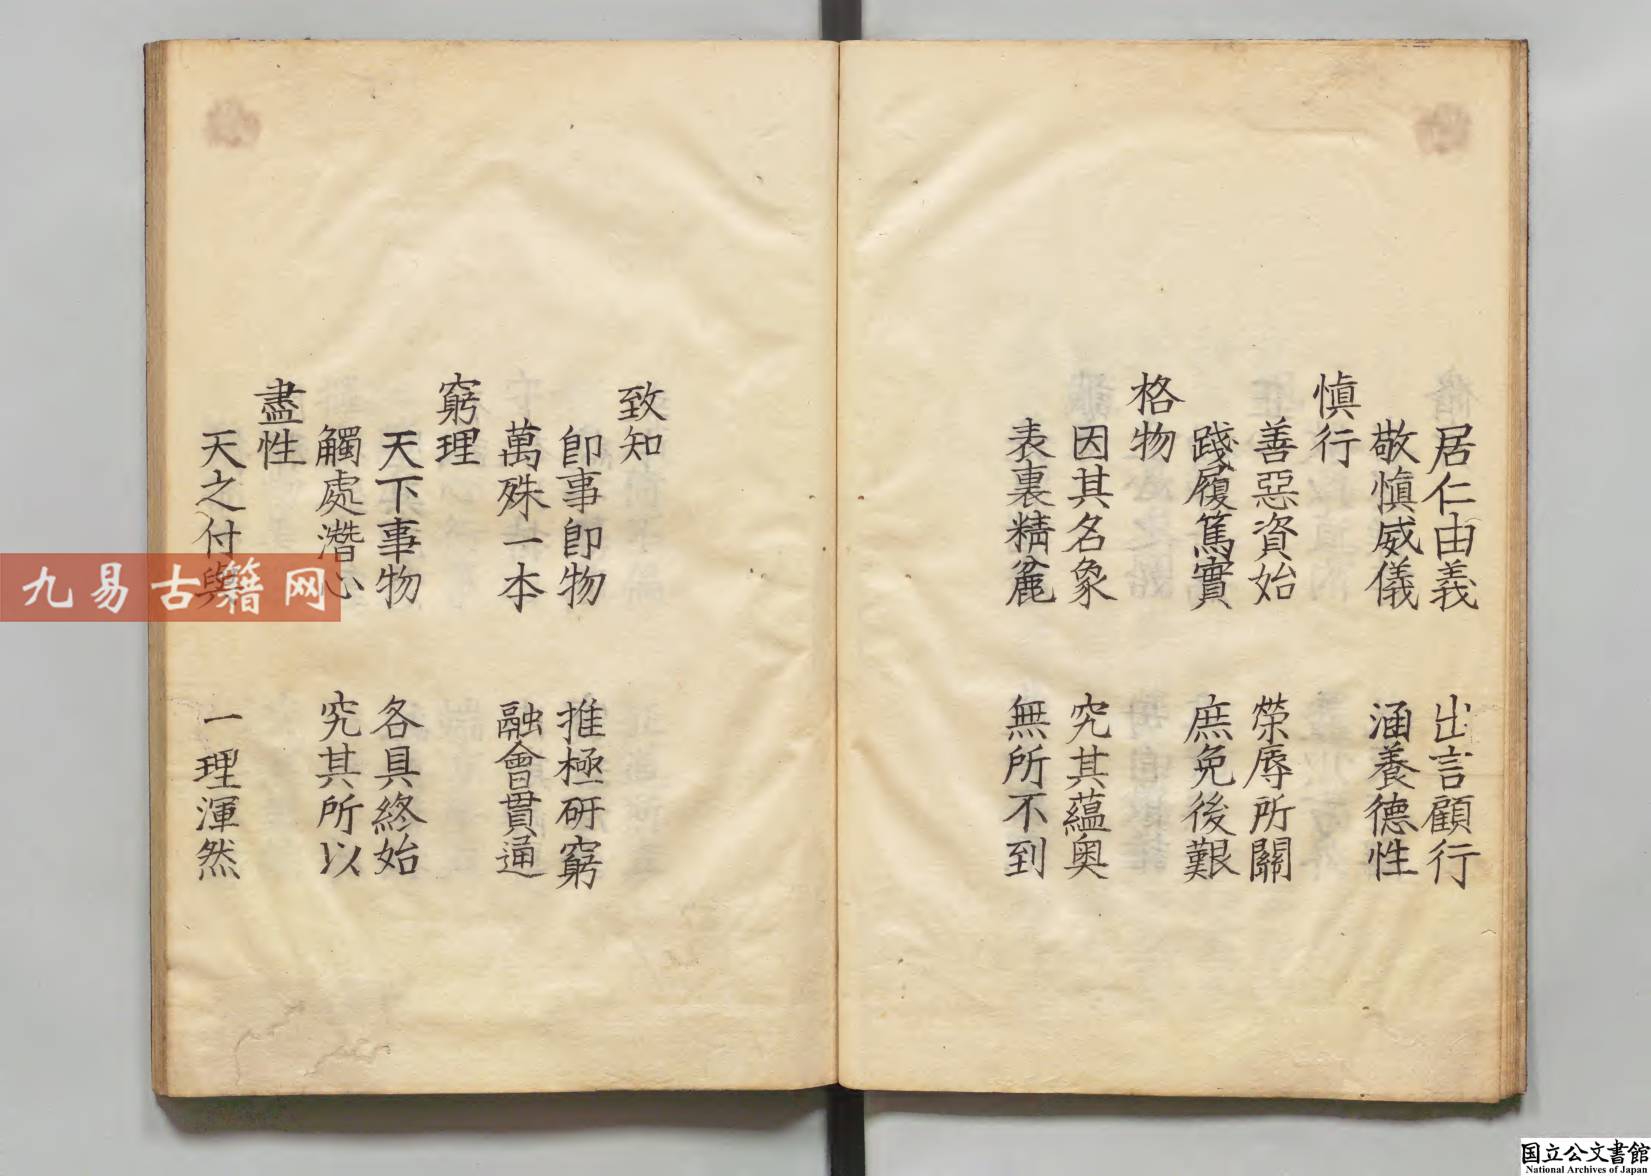 居仁由義 出言顧行
敬慎威儀 涵養德性
慎行
善惡資始 榮辱所關
踐履篤實 庶免後艱
格物
因其名象 究其蘊奥
表裏精麄 無所不到
致知
卽事卽物 推極研窮
萬殊一本 融會貫通
窮理
天下事物 各具終始
觸處潛心 究其所以
盡性
天之付與 一理渾然
九易古籍网
国立公文書館
National Archives of Japan